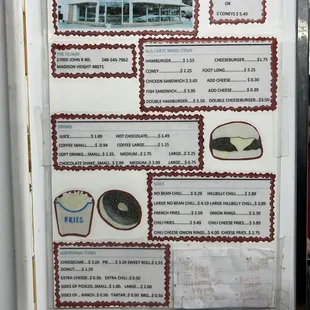 OR
3 CONEYS $ 5.49
27000 JOHN R RD. 248-545-7962
MADISON HEIGHT 48071
ALA CARTE MENU ITEMS
HAMBURGER......$ 1.55 CHEESEBURGER....$1.75
CONEY......$ 2.25 FOOT LONG......$ 3.25
CHICKEN SANDWICH $ 3.65 ADD CHEESE......$ 0.30
FISH SANDWICH....$ 3.95 ADD CHEESE......$ 0.30
DOUBLE HAMBURGER..$3.10 DOUBLE CHEESEBURGER..$3.50
DRINKS
JUICE......$ 1.89 HOT CHOCOLATE......$ 1.49
COFFEE SMALL......$ 0.94 COFFEE LARGE......$ 1.25
SOFT DRINKS...SMALL...$ 2.25 MEDIUM...$ 2.75 LARGE...$ 3.25
CHOCOLATE SHAKE, SMALL...$ 2.99 MEDIUM...$ 3.99 LARGE...$ 4.75
SIDES
NO BEAN CHILI......$ 3.29 HILLBILLY CHILI...$ 2.89
LARGE NO BEAN CHILI...$ 4.10 LARGE HILLBILLY CHILI..$ 3.89
FRENCH FRIES......$ 2.05 ONION RINGS......$ 2.39
CHILI FRIES......$ 3.49 CHILI CHEESE FRIES....$ 3.99
CHILI CHEESE ONION RINGS....$ 4.00 CHEESE FRIES..$ 2.75
FRIES
ADDITIONAL ITEMS
CHEESECAKE....$ 3.20 PIE.....$ 3.20 SWEET ROLL $ 1.95
DONUT......$ 1.29
EXTRA CHEESE..$ 0.30 EXTRA CHILI..$ 0.50
SIDES OF PICKLES,SMALL..$ 1.00 LARGE..$ 2.00
SIDES OF... RANCH..$ 0.50 TARTAR..$ 0.50 BBQ...$ 0.50